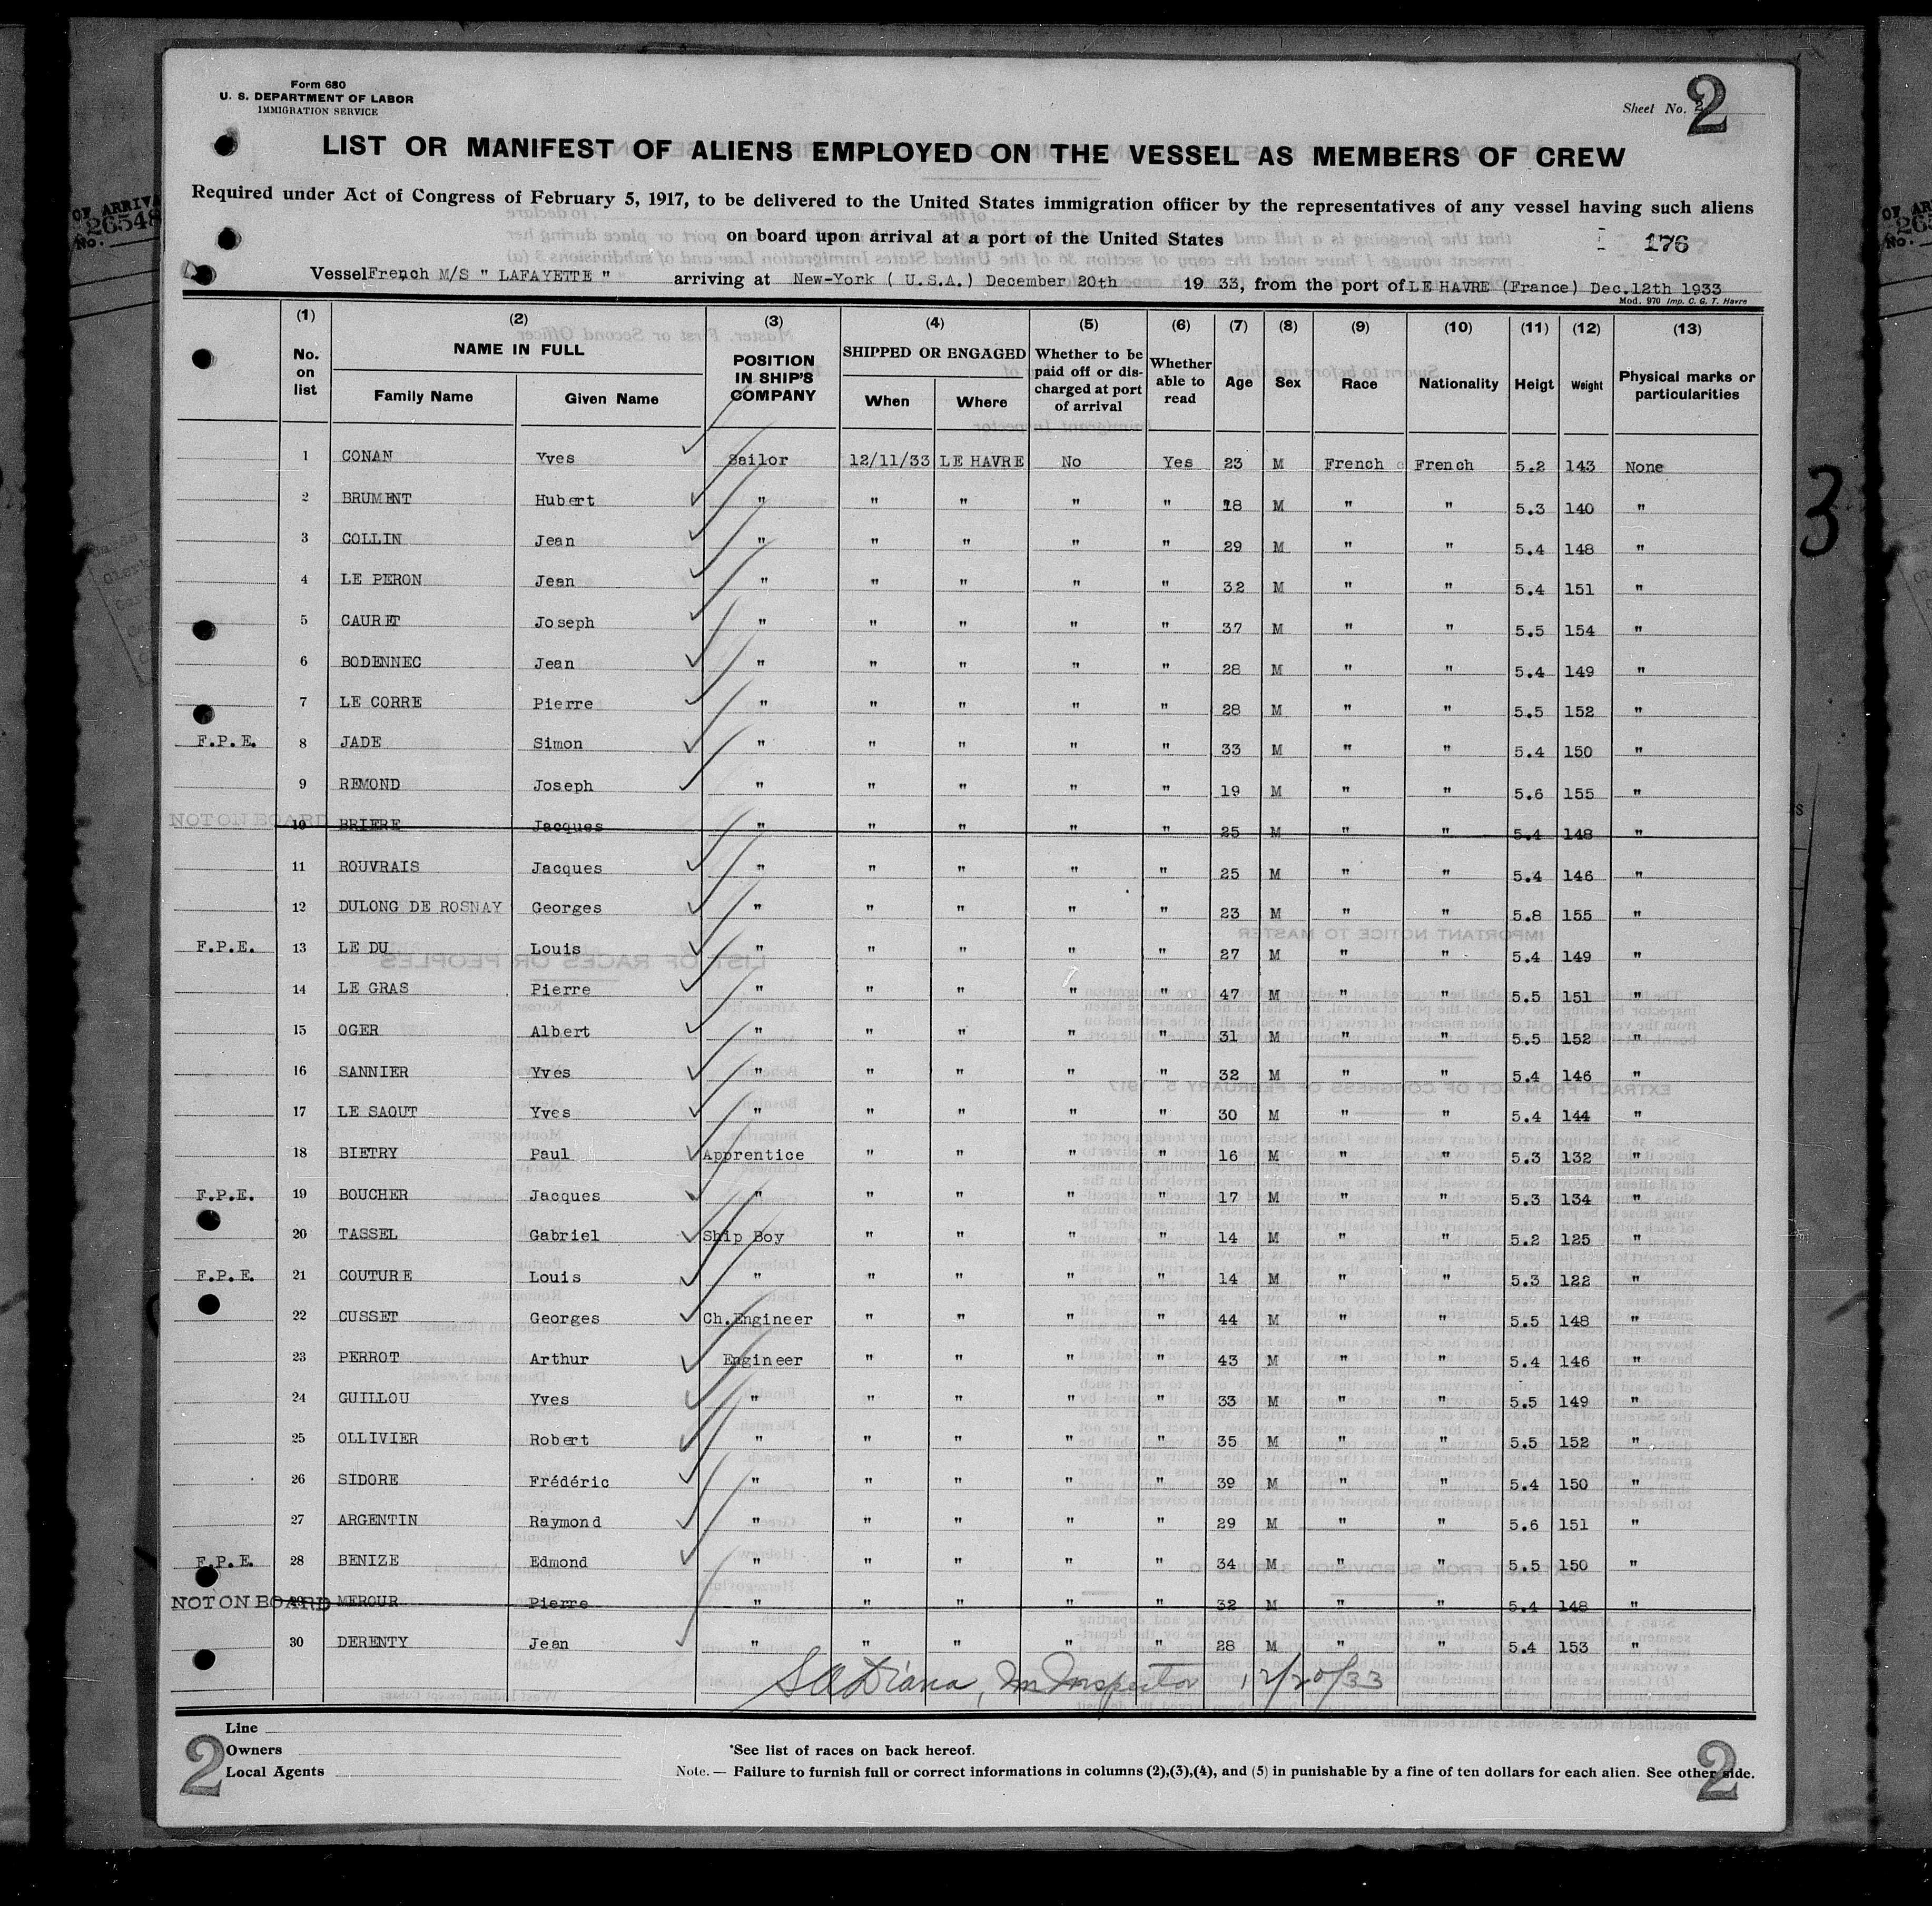 Form 680
U. S. DEPARTMENT OF LABOR
IMMIGRATION SERVICE
Sheet No. 2
2
LIST OR MANIFEST OF ALIENS EMPLOYED ON THE VESSEL AS MEMBERS OF CREW
Required under Act of Congress of February 5, 1917, to be delivered to the United States immigration officer by the representatives of any vessel having such aliens
on board upon arrival at a port of the United States
176
Vessel French M/S " LAFAYETTE " arriving at New-York ( U.S.A.) December 20th 19 33, from the port of LE HAVRE (France) Dec.12th 1933
Mod. 970 Imp. C. G. T. Havre
(1) (2) (3) (4) (5) (6) (7) (8) (9) (10) (11) (12) (13)
No. on list NAME IN FULL Family Name Given Name POSITION IN SHIP'S COMPANY SHIPPED OR ENGAGED When Where Whether to be paid off or discharged at port of arrival Whether able to read Age Sex Race Nationality Heigt Weight Physical marks or particularities
1 CONAN Yves Sailor 12/11/33 LE HAVRE No Yes 23 M French French 5.2 143 None
2 BRUMENT Hubert " " " " " 18 M " " 5.3 140 "
3 COLLIN Jean " " " " " 29 M " " 5.4 148 "
4 LE PERON Jean " " " " " 32 M " " 5.4 151 "
5 CAURET Joseph " " " " " 37 M " " 5.5 154 "
6 BODENNEC Jean " " " " " 28 M " " 5.4 149 "
7 LE CORRE Pierre " " " " " 28 M " " 5.5 152 "
F.P.E. 8 JADE Simon " " " " " 33 M " " 5.4 150 "
9 REMOND Joseph " " " " " 19 M " " 5.6 155 "
NOT ON BOARD 10 BRIERE Jacques " " " " " 25 M " " 5.4 148 "
11 ROUVRAIS Jacques " " " " " 25 M " " 5.4 146 "
12 DULONG DE ROSNAY Georges " " " " " 23 M " " 5.8 155 "
F.P.E. 13 LE DU Louis " " " " " 27 M " " 5.4 149 "
14 LE GRAS Pierre " " " " " 47 M " " 5.5 151 "
15 OGER Albert " " " " " 31 M " " 5.5 152 "
16 SANNIER Yves " " " " " 32 M " " 5.4 146 "
17 LE SAOUT Yves " " " " " 30 M " " 5.4 144 "
18 BIETRY Paul Apprentice " " " " 16 M " " 5.3 132 "
F.P.E. 19 BOUCHER Jacques " " " " " 17 M " " 5.3 134 "
20 TASSEL Gabriel Ship Boy " " " " 14 M " " 5.2 125 "
F.P.E. 21 COUTURE Louis " " " " " 14 M " " 5.3 122 "
22 CUSSET Georges Ch.Engineer " " " " 44 M " " 5.5 148 "
23 PERROT Arthur Engineer " " " " 43 M " " 5.4 146 "
24 GUILLOU Yves " " " " " 33 M " " 5.5 149 "
25 OLLIVIER Robert " " " " " 35 M " " 5.5 152 "
26 SIDORE Frédéric " " " " " 39 M " " 5.4 150 "
27 ARGENTIN Raymond " " " " " 29 M " " 5.6 151 "
F.P.E. 28 BENIZE Edmond " " " " " 34 M " " 5.5 150 "
NOT ON BOARD 29 MEROUR Pierre " " " " " 32 M " " 5.4 148 "
30 DERENTY Jean " " " " " 28 M " " 5.4 153 "
Diana, Im Inspector 12/20/33
Line
Owners
Local Agents
*See list of races on back hereof.
Note. — Failure to furnish full or correct informations in columns (2),(3),(4), and (5) in punishable by a fine of ten dollars for each alien. See other side.
2
2
3
26548
No.